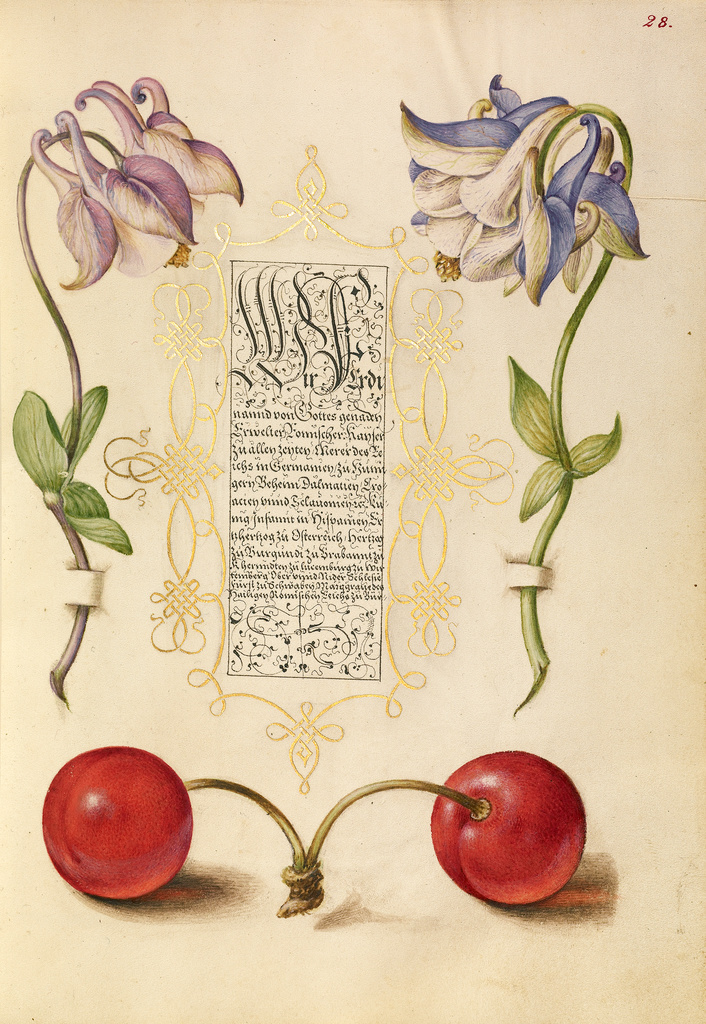 28.
Wir Ferdi
nannd von Gottes genaden
Erwelter Römischer Kayser
zu allen zeyten Merer des Rei
chs in Germanien, zu Hunn
gern Behem Dalmatien Cro
acien vnnd Sclauonien, &c. Kü
nig Infannt in Hispanien, Er
zherzog zu Österreich, Hertzog
zu Burgundt zu Brabannt zu
Khernndten zu Lucemburg zu Wir
temberg Ober vnnd Nider Schlesie
Fürst zu Schwaben Marggraf des
Hailigen Römischen Reichs zu Bur,